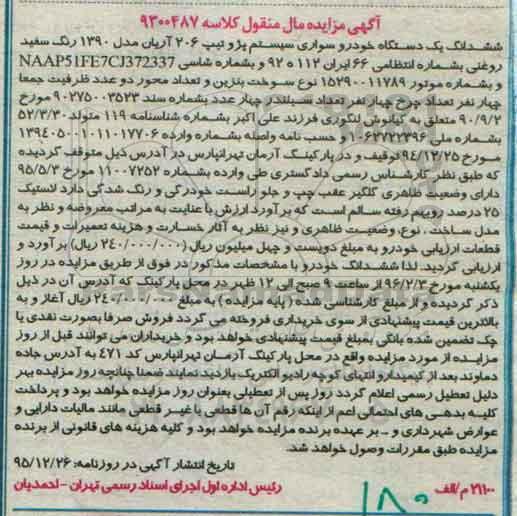 آگهی مزایده مال منقول کلاسه ۹۳۰۰۴۸۷
ششدانگ یک دستگاه خودرو سواری سیستم پژو تیپ ۲۰۶ آریان مدل ۱۳۹۰ رنگ سفید
روغنی بشماره انتظامی ۶۶ ایران ۱۱۲ ه ۹۲ و بشماره شاسی NAAP51FE7CJ372337
و بشماره موتور ۱۵۲۹۰۰۱۱۷۸۹ نوع سوخت بنزین و تعداد محور دو عدد ظرفیت جمعا
چهار نفر تعداد چرخ چهار نفر تعداد سیلندر چهار عدد بشماره سند ۹۰۲۷۵۰۰۳۵۲۳ مورخ
۹۰/۹/۲ متعلق به کیانوش لنگوری فرزند علی اکبر بشماره شناسنامه ۱۱۹ متولد ۵۲/۳/۳۰
بشماره ملی ۱۰۶۲۷۲۲۳۹۶ و حسب نامه واصله بشماره وارده ۱۳۹۴۰۵۰۰۱۰۱۱۰۱۷۷۰۶
مورخ ۹۴/۱۲/۲۵ توقیف و در پارکینگ آرمان تهرانپارس در آدرس ذیل متوقف گردیده
که طبق نظر کارشناس رسمی دادگستری طی وارده بشماره ۱۱۰۰۷۲۵۲ مورخ ۹۵/۵/۳
دارای وضعیت ظاهری گلگیر عقب چپ و جلو راست خودرگی و رنگ شدگی دارد لاستیک
۲۵ درصد رویهم رفته سالم است که برآورد ارزش با عنایت به مراتب معروضه و نظر به
مدل ساخت ، نوع، وضعیت ظاهری و نیز نظر به آثار خسارت و هزینه تعمیرات و قیمت
قطعات ارزیابی خودرو به مبلغ دویست و چهل میلیون ریال (۲۴۰/۰۰۰/۰۰۰ ریال) برآورد و
ارزیابی گردید. لذا ششدانگ خودرو با مشخصات مذکور در فوق از طریق مزایده در روز
یکشنبه مورخ ۹۶/۲/۳ از ساعت ۹ صبح الی ۱۲ ظهر در محل پارکینگ که آدرس آن در ذیل
ذکر گردیده و از مبلغ کارشناسی شده ( پایه مزایده ) به مبلغ ۲۴۰/۰۰۰/۰۰۰ ریال آغاز و به
بالاترین قیمت پیشنهادی از سوی خریداری فروخته می گردد فروش صرفا بصورت نقدی یا
چک تضمین شده بانکی /مبلغ قیمت پیشنهادی خواهد بود و خریداران می توانند قبل از روز
مزایده از مورد مزایده واقع در محل پارکینگ آرمان تهرانپارس کد ۴۷۱ به آدرس جاده
دماوند بعد از کیمیدارو انتهای کوچه رادیو الکتریک بازدید نمایند ضمنا چنانچه روز مزایده بهر
دلیل تعطیل رسمی اعلام گردد روز پس از تعطیلی بعنوان روز مزایده خواهد بود و پرداخت
کلیه بدهی های احتمالی اعم از اینکه رقم آن ها قطعی یا غیر قطعی مانند مالیات دارایی و
عوارض شهرداری و ... بر عهده برنده مزایده خواهد بود و کلیه هزینه های قانونی از برنده
مزایده طبق مقررات وصول خواهد شد.
تاریخ انتشار آگهی در روزنامه: ۹۵/۱۲/۲۶
۲۱۱۰۰ م/الف رئیس اداره اول اجرای اسناد رسمی تهران - احمدیان
۱۸۰